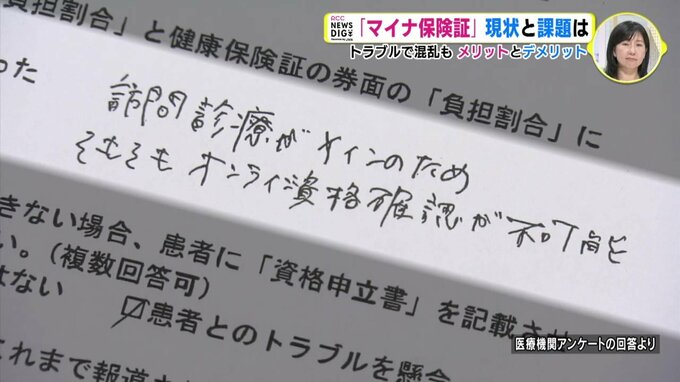 RCC
NEWS
DIG
「マイナ保険証」現状と課題は
トラブルで混乱も メリットとデメリット
負担割合」と健康保険証の券面の「負担割合」に
った
訪問診療がメインのため
そもそも オンライン資格確認が 不可能
きない場合、患者に「資格申立書」を記載させ
い。(複数回答可)
せない
☑患者とのトラブルを懸念
これまで報道され
医療機関アンケートの回答より